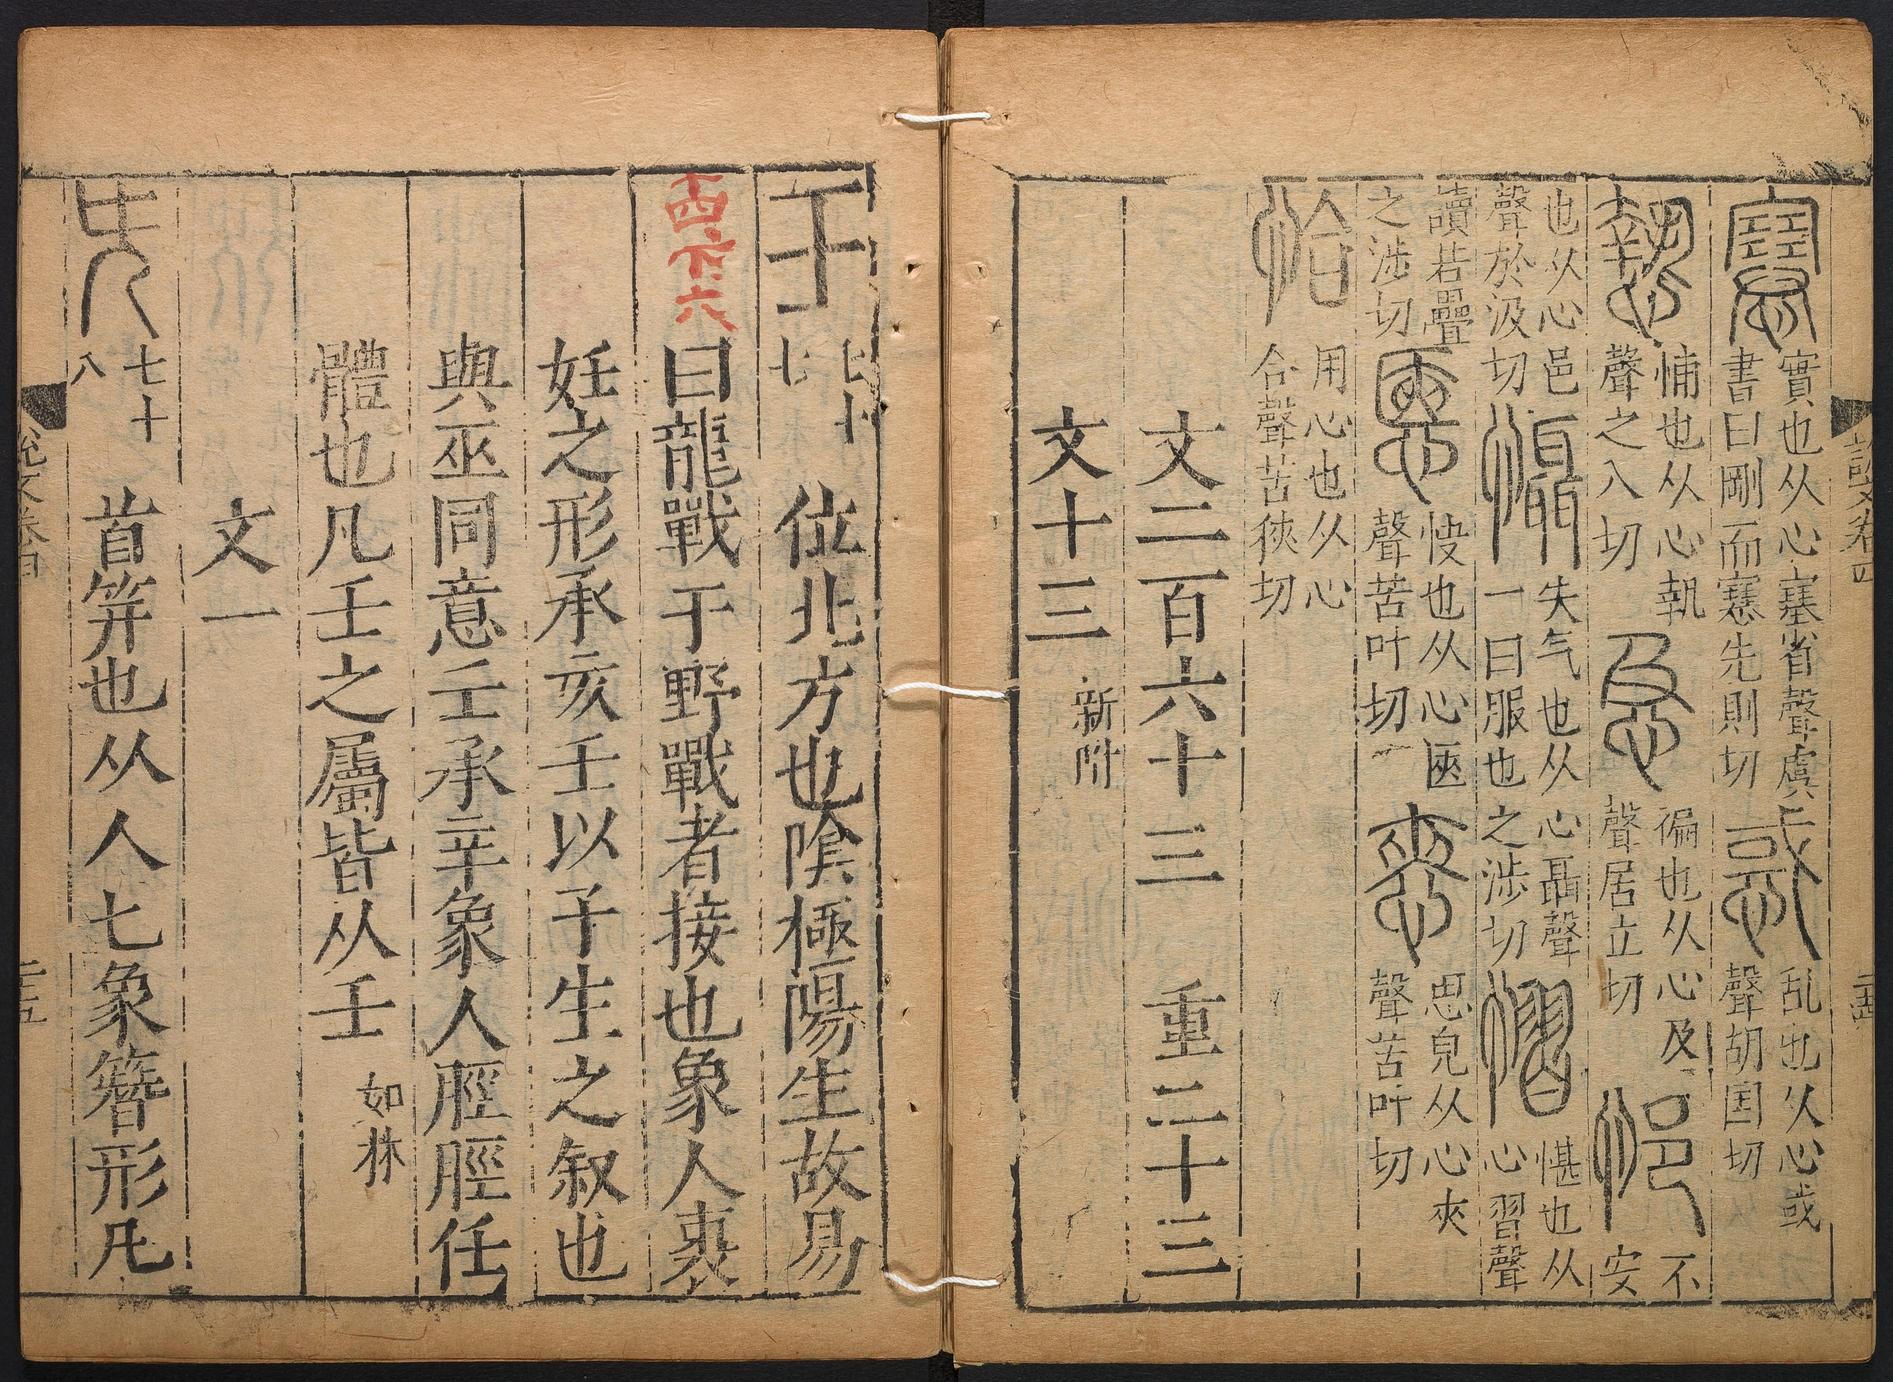 說文卷四
㥶實也从心塞省聲虞書曰剛而㥶先則切惑乱也从心或聲胡囯切
慹悑也从心執聲之入切急褊也从心及聲居立切悒不安
也从心邑聲於汲切懾失气也从心聶聲一曰服也之涉切慴愖也从心習聲
讀若疊之涉切㥦快也从心匧聲苦叶切㤲思皃从心夾聲苦叶切
恰用心也从心合聲苦狹切
文二百六十三 重二十三
文十三 新附
壬 七十七 位北方也陰極陽生故易
十四下六
曰龍戰于野戰者接也象人褢
妊之形承亥壬以子生之叙也
與巫同意壬承辛象人脛脛任
體也凡壬之屬皆从壬 如林
文一
兂 七十八 首筓也从人七象簪形凡
說文卷四
二十五